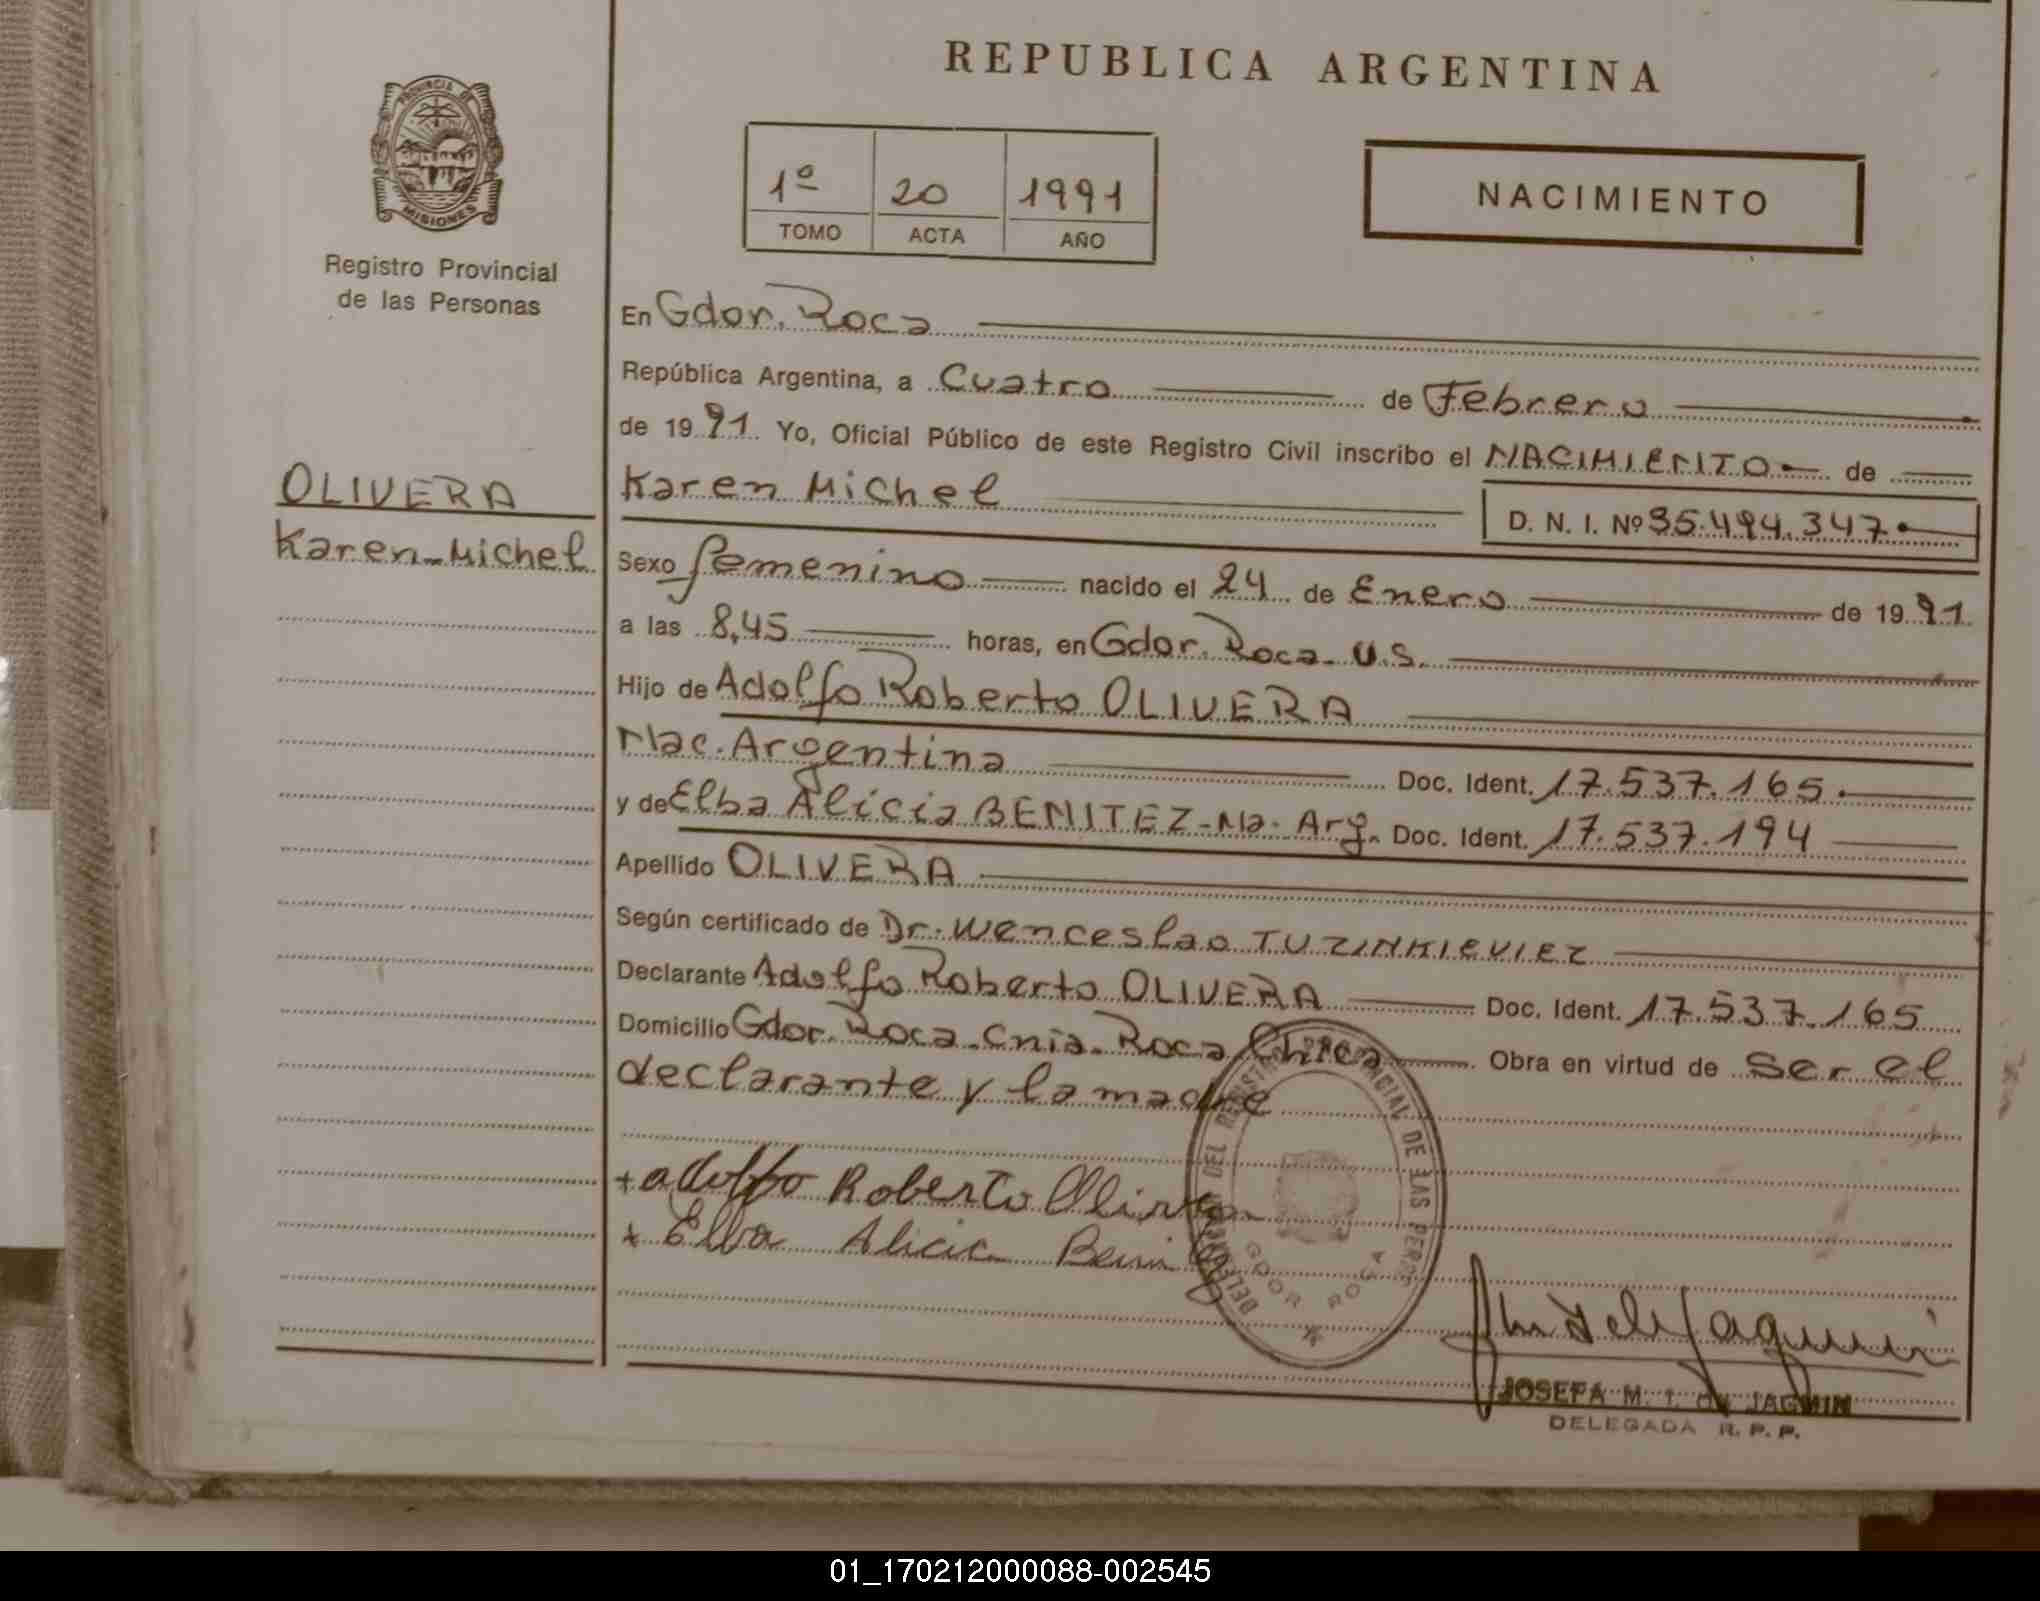 REPUBLICA ARGENTINA
PROVINCIA DE
MISIONES
Registro Provincial
de las Personas
1º 20 1991
TOMO ACTA AÑO
NACIMIENTO
En Gdor. Roca
República Argentina, a Cuatro de Febrero
de 1991. Yo, Oficial Público de este Registro Civil inscribo el NACIMIENTO de
OLIVERA
Karen Michel
D. N. I. Nº 35.494.347
Karen Michel
Sexo femenino nacido el 24 de Enero de 1991.
a las 8,45 horas, en Gdor. Roca. U.S.
Hijo de Adolfo Roberto OLIVERA
Nac. Argentina Doc. Ident. 17.537.165.
y de Elba Alicia BENITEZ-Na. Arg. Doc. Ident. 17.537.194
Apellido OLIVERA
Según certificado de Dr. Wenceslao TUZINKIEVIEZ
Declarante Adolfo Roberto OLIVERA Doc. Ident. 17.537.165
Domicilio Gdor. Roca-Cnia. Roca Chica Obra en virtud de ser el
declarante y la madre
+ adolfo Roberto Olivera
+ Elba Alicia
GDOR ROCA
JOSEFA M. T. de JAGMIN
DELEGADA R. P. P.
01_170212000088-002545